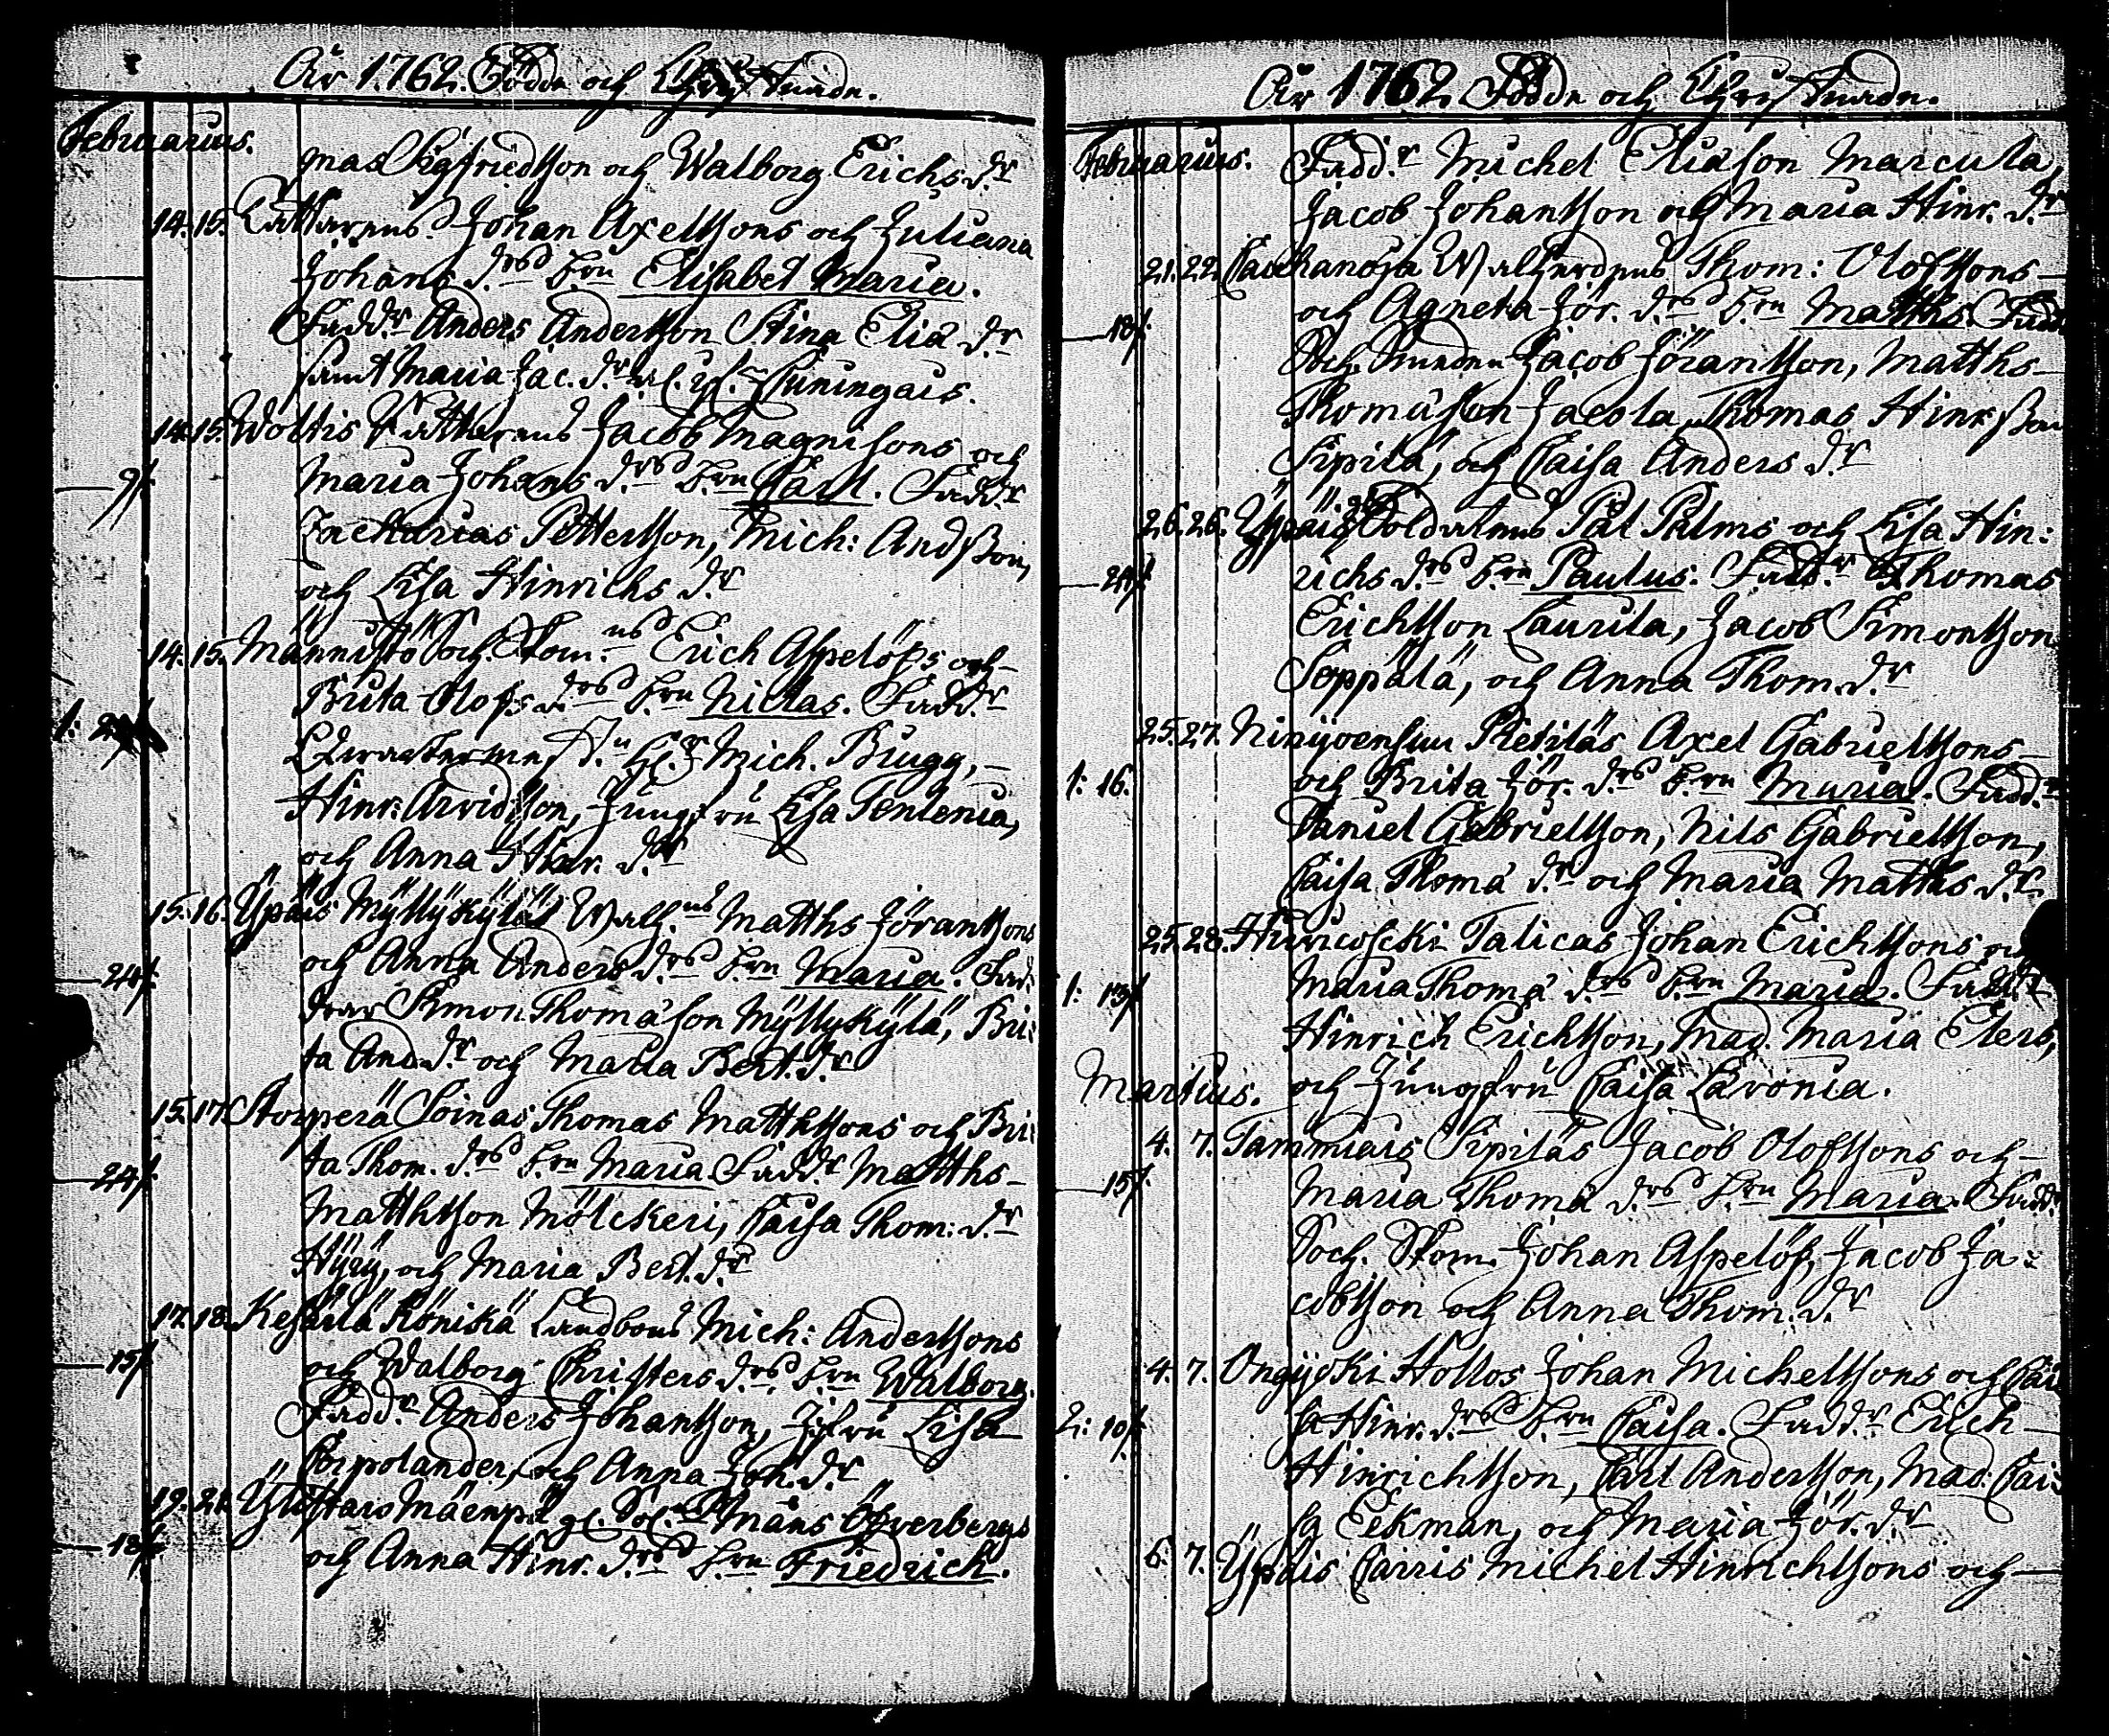 År 1762. Födde och Christnade.
Februarius.
mas Sigfriedsson och Walborg Erichs dr
14. 15. Johan Axelssons och Juliana
Johans drs brn Elisabet Maria.
Fadd.r Anders Andersson Stina Eliä dr
samt Maria Jac. dr
14. 15. Woltis Jacob Magnisons och
9/. Maria Johans drs brn Carl. Fadd.r
Zacharias Pettersson, Mich: Andsson,
och Lisa Hinrichs dr
14. 15. Männistö Soch. Stom.ns Erich Aspelöfs och
Brita Olofs drs brn Niclas. Fadd.r
Mich. Brugg,
Hinr: Arvidsson, Jungfru Lisa Tenlenia,
och Anna Hinr. dr
15. 16. Ypäis Myllykyläs Matths Jöranssons
24/. och Anna Anders drs brn Maria. Fad-
drar Simon Thomäson Myllykylä, Bri-
ta And. dr och Maria Bert. dr
15. 17. Storperä Soinas Thomas Matthssons och Bri-
24/. ta Thom. drs brn Maria Fadd.r Matths
Matthsson Mölckeri, Caisa Thom: dr
Hyry, och Maria Bert. dr
17. 18. Kesärlä Könikä Landbons Mich: Anderssons
15/. och Walborg Christers drs brn Walborg.
Fadd.r Anders Johansson, Jfru Lisa
Corpolander, och Anna Joh. dr
19. 21. Ylistaro Mäenpä Måns Öfverbergs
18/. och Anna Hinr. drs brn Friedrich.
År 1762. Födde och Christnade.
Februarius. Fadd.r Michel Eliäson Marcula,
Jacob Johansson och Maria Hinr. dr
21. 22. Cauhanoja Thom: Olofssons
18/. och Agneta Jör. drs brn Matths. Fadd.
Jacob Jöransson, Matths
Thomäson Jacola, Thomas Hinrsson
Sipilä, och Caisa Anders dr
26. 26. Ypäis Pål Palms och Lisa Hin:
24/. richs drs brn Paulus. Fadd.r Thomas
Erichsson Laurila, Jacob Simonsson
Seppälä, och Anna Thom. dr
25. 27. Pietiläs Axel Gabrielssons
1: 16. och Brita Jör. drs brn Maria. Fadd.r
Daniel Gabrielsson, Nils Gabrielsson,
Caisa Thomä dr och Maria Matths dr.
25. 28. Talicas Johan Erichssons och
1: 13/. Maria Thomä drs brn Maria. Fadd.r
Hinrich Erichsson, Mad. Maria Elers,
Martius. och Jungfru Caisa Lavonia.
4. 7. Tammiais Sipiläs Jacob Olofssons och
15/. Maria Thomä drs brn Maria. Fadd.r
Soch. Stom. Johan Aspelöf, Jacob Ja-
cobsson och Anna Thom. dr
4. 7. Ongijoki Hollos Johan Michelssons och Cai-
2: 10/. sa Hinr. drs brn Caisa. Fadd.r Erich
Hinrichsson, Carl Andersson, Mad. Cai-
sa Eekman, och Maria Jör. dr
6. 7. Ypäis Carris Michel Hinrichssons och